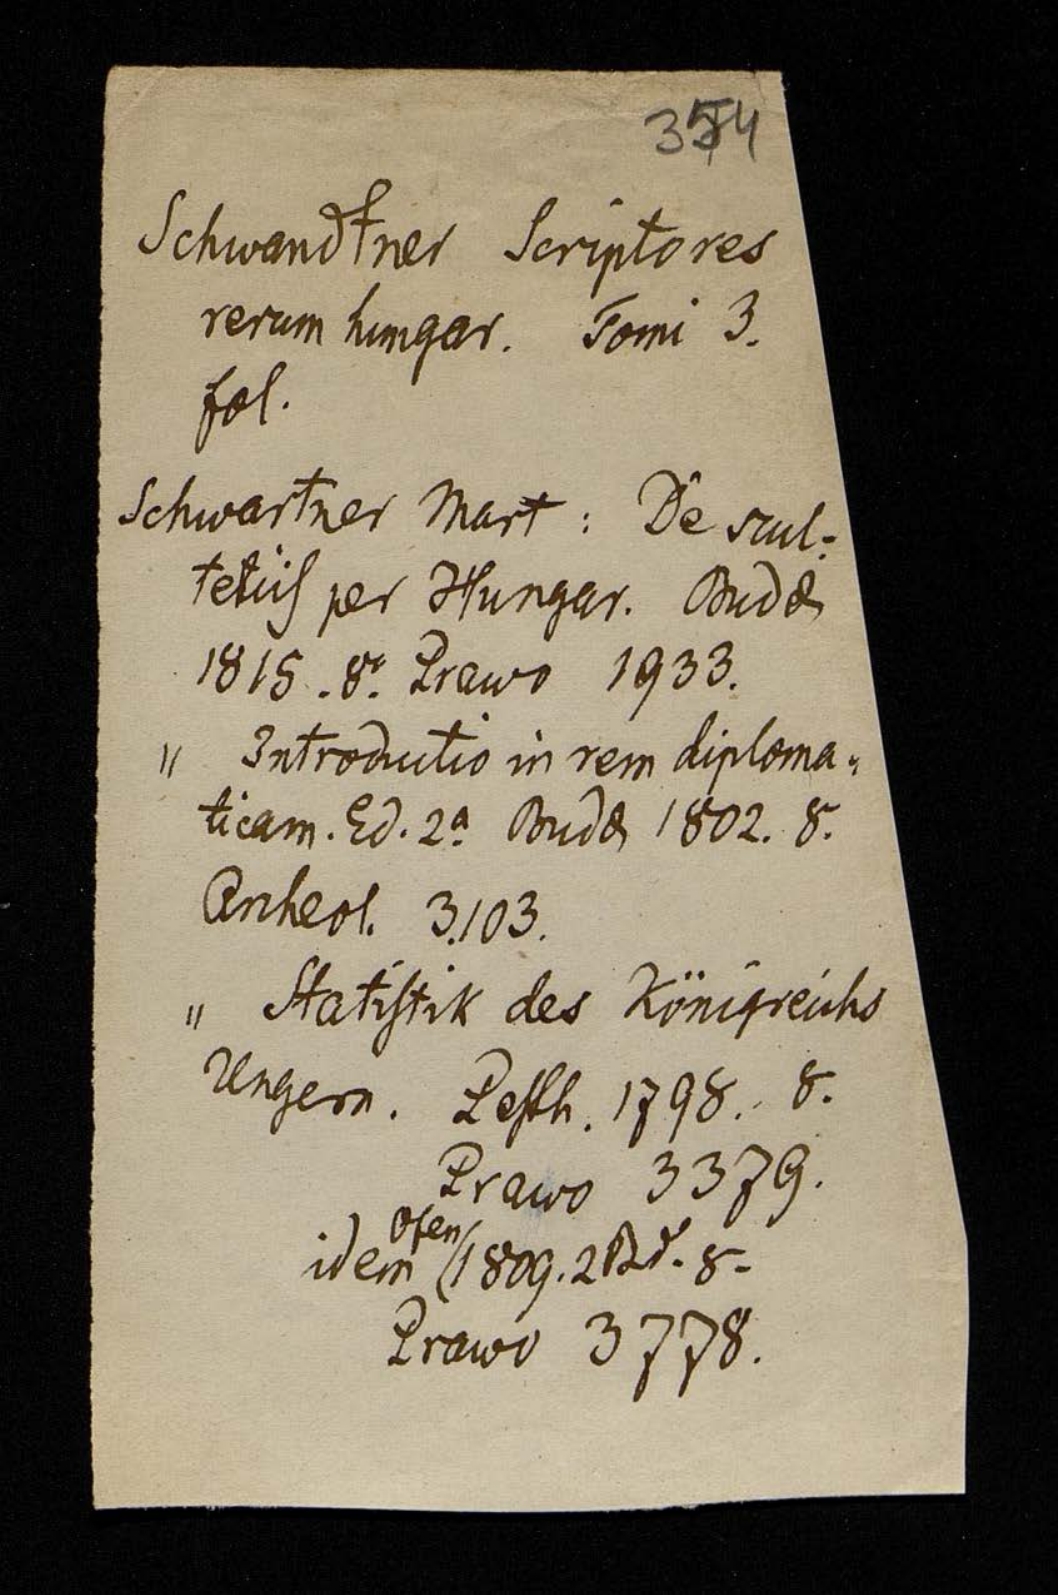 354
Schwandtner Scriptores
rerum hungar. Tomi 3.
fol.
Schwartner Mart: De scul-
tetiis per Hungar. Budæ
1815. 8º. Prawo 1933.
" Introductio in rem diploma-
ticam. Ed. 2ª Budæ 1802. 8.
Archeol. 3.103.
" Statistik des Königreichs
Ungern. Pesth. 1798. 8.
Prawo 3379.
Ofen
idem (1809. 2 Bd. 8-
Prawo 3778.